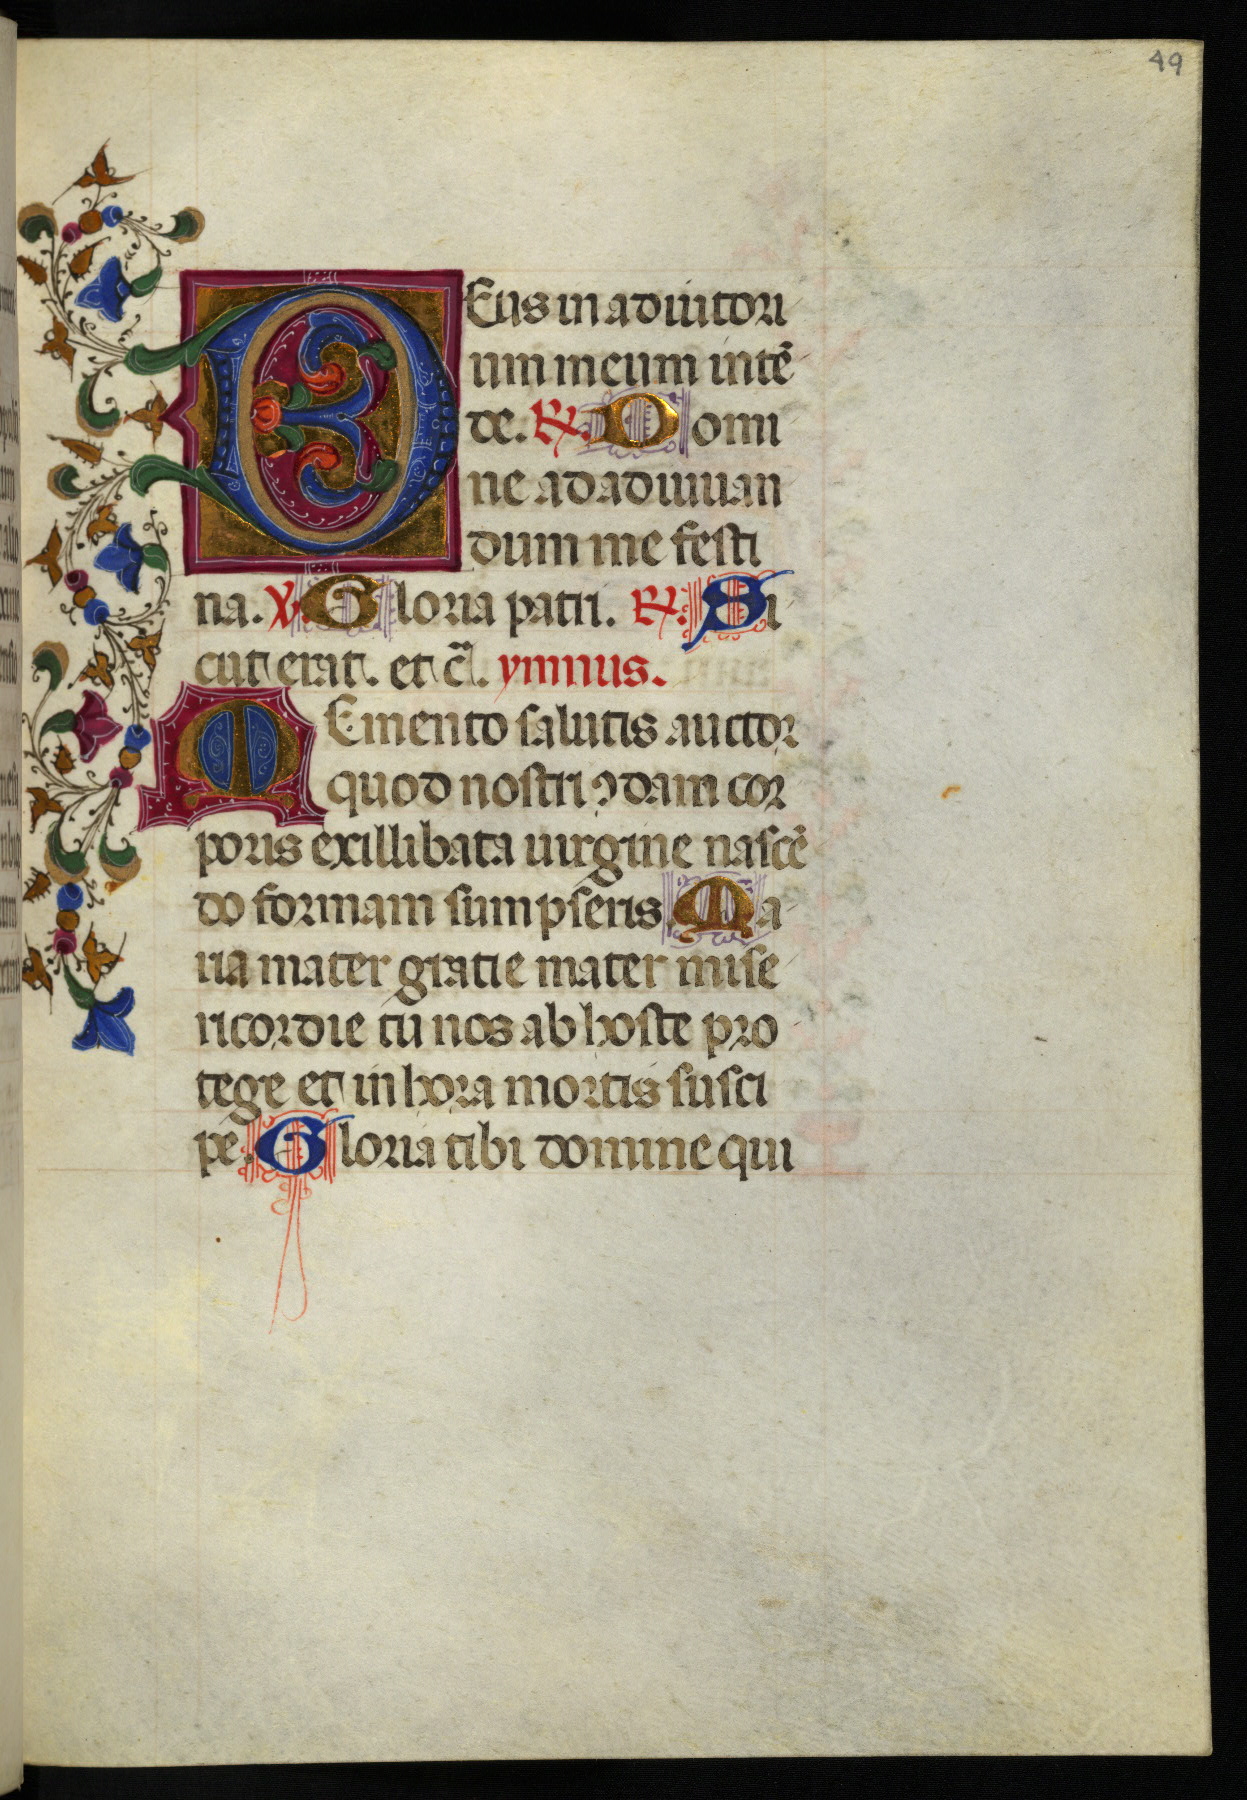 49
DEus in adiutori
um meum intẽ
de. R̃. Domi
ne ad adiuuan
dum me festi
na. V. Gloria patri. R̃. Si
cut erat. et c̃. ymnus.
MEmento salutis auctor
quod nostri ꝯdam cor
poris exillibata uirgine nascẽ
do formam sumpseris. Ma
ria mater gratie mater mise
ricordie tu nos ab hoste pro
tege et in hora mortis susci
pe. Gloria tibi domine qui